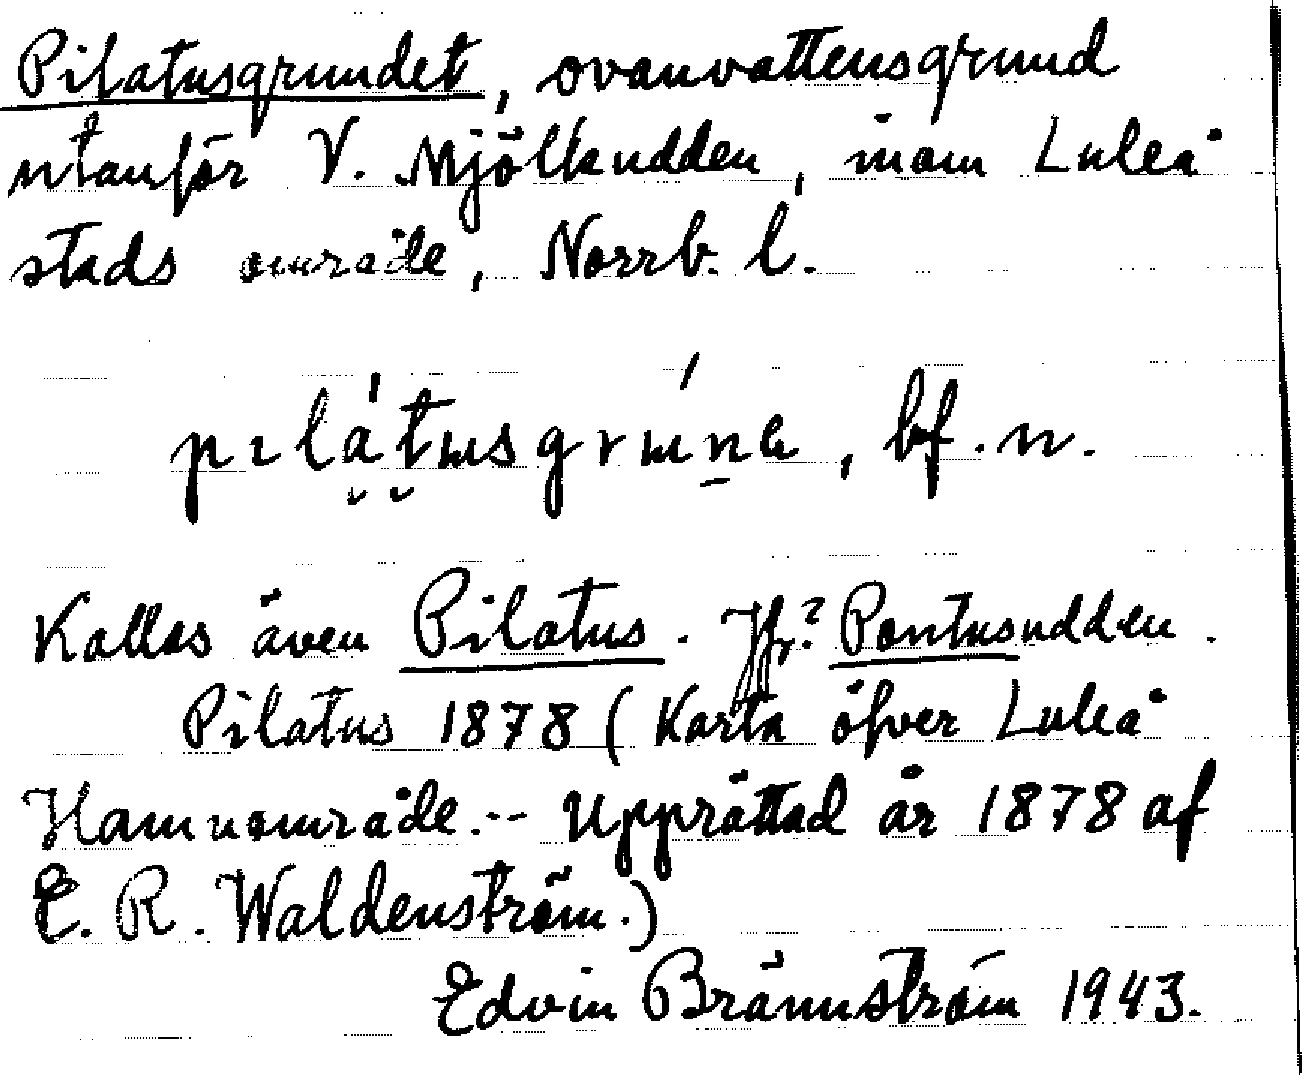 Pilatusgrundet, ovanvattensgrund
utanför V. Mjölkudden, inom Luleå
stads område, Norrb. l.
pılátusgrúnḛ, bf. n.
Kallas även Pilatus. Jfr? Pontusudden.
Pilatus 1878 (Karta öfver Luleå
Hamnområde.-- Upprättad år 1878 af
E. R. Waldenström.)
Edvin Brännström 1943.